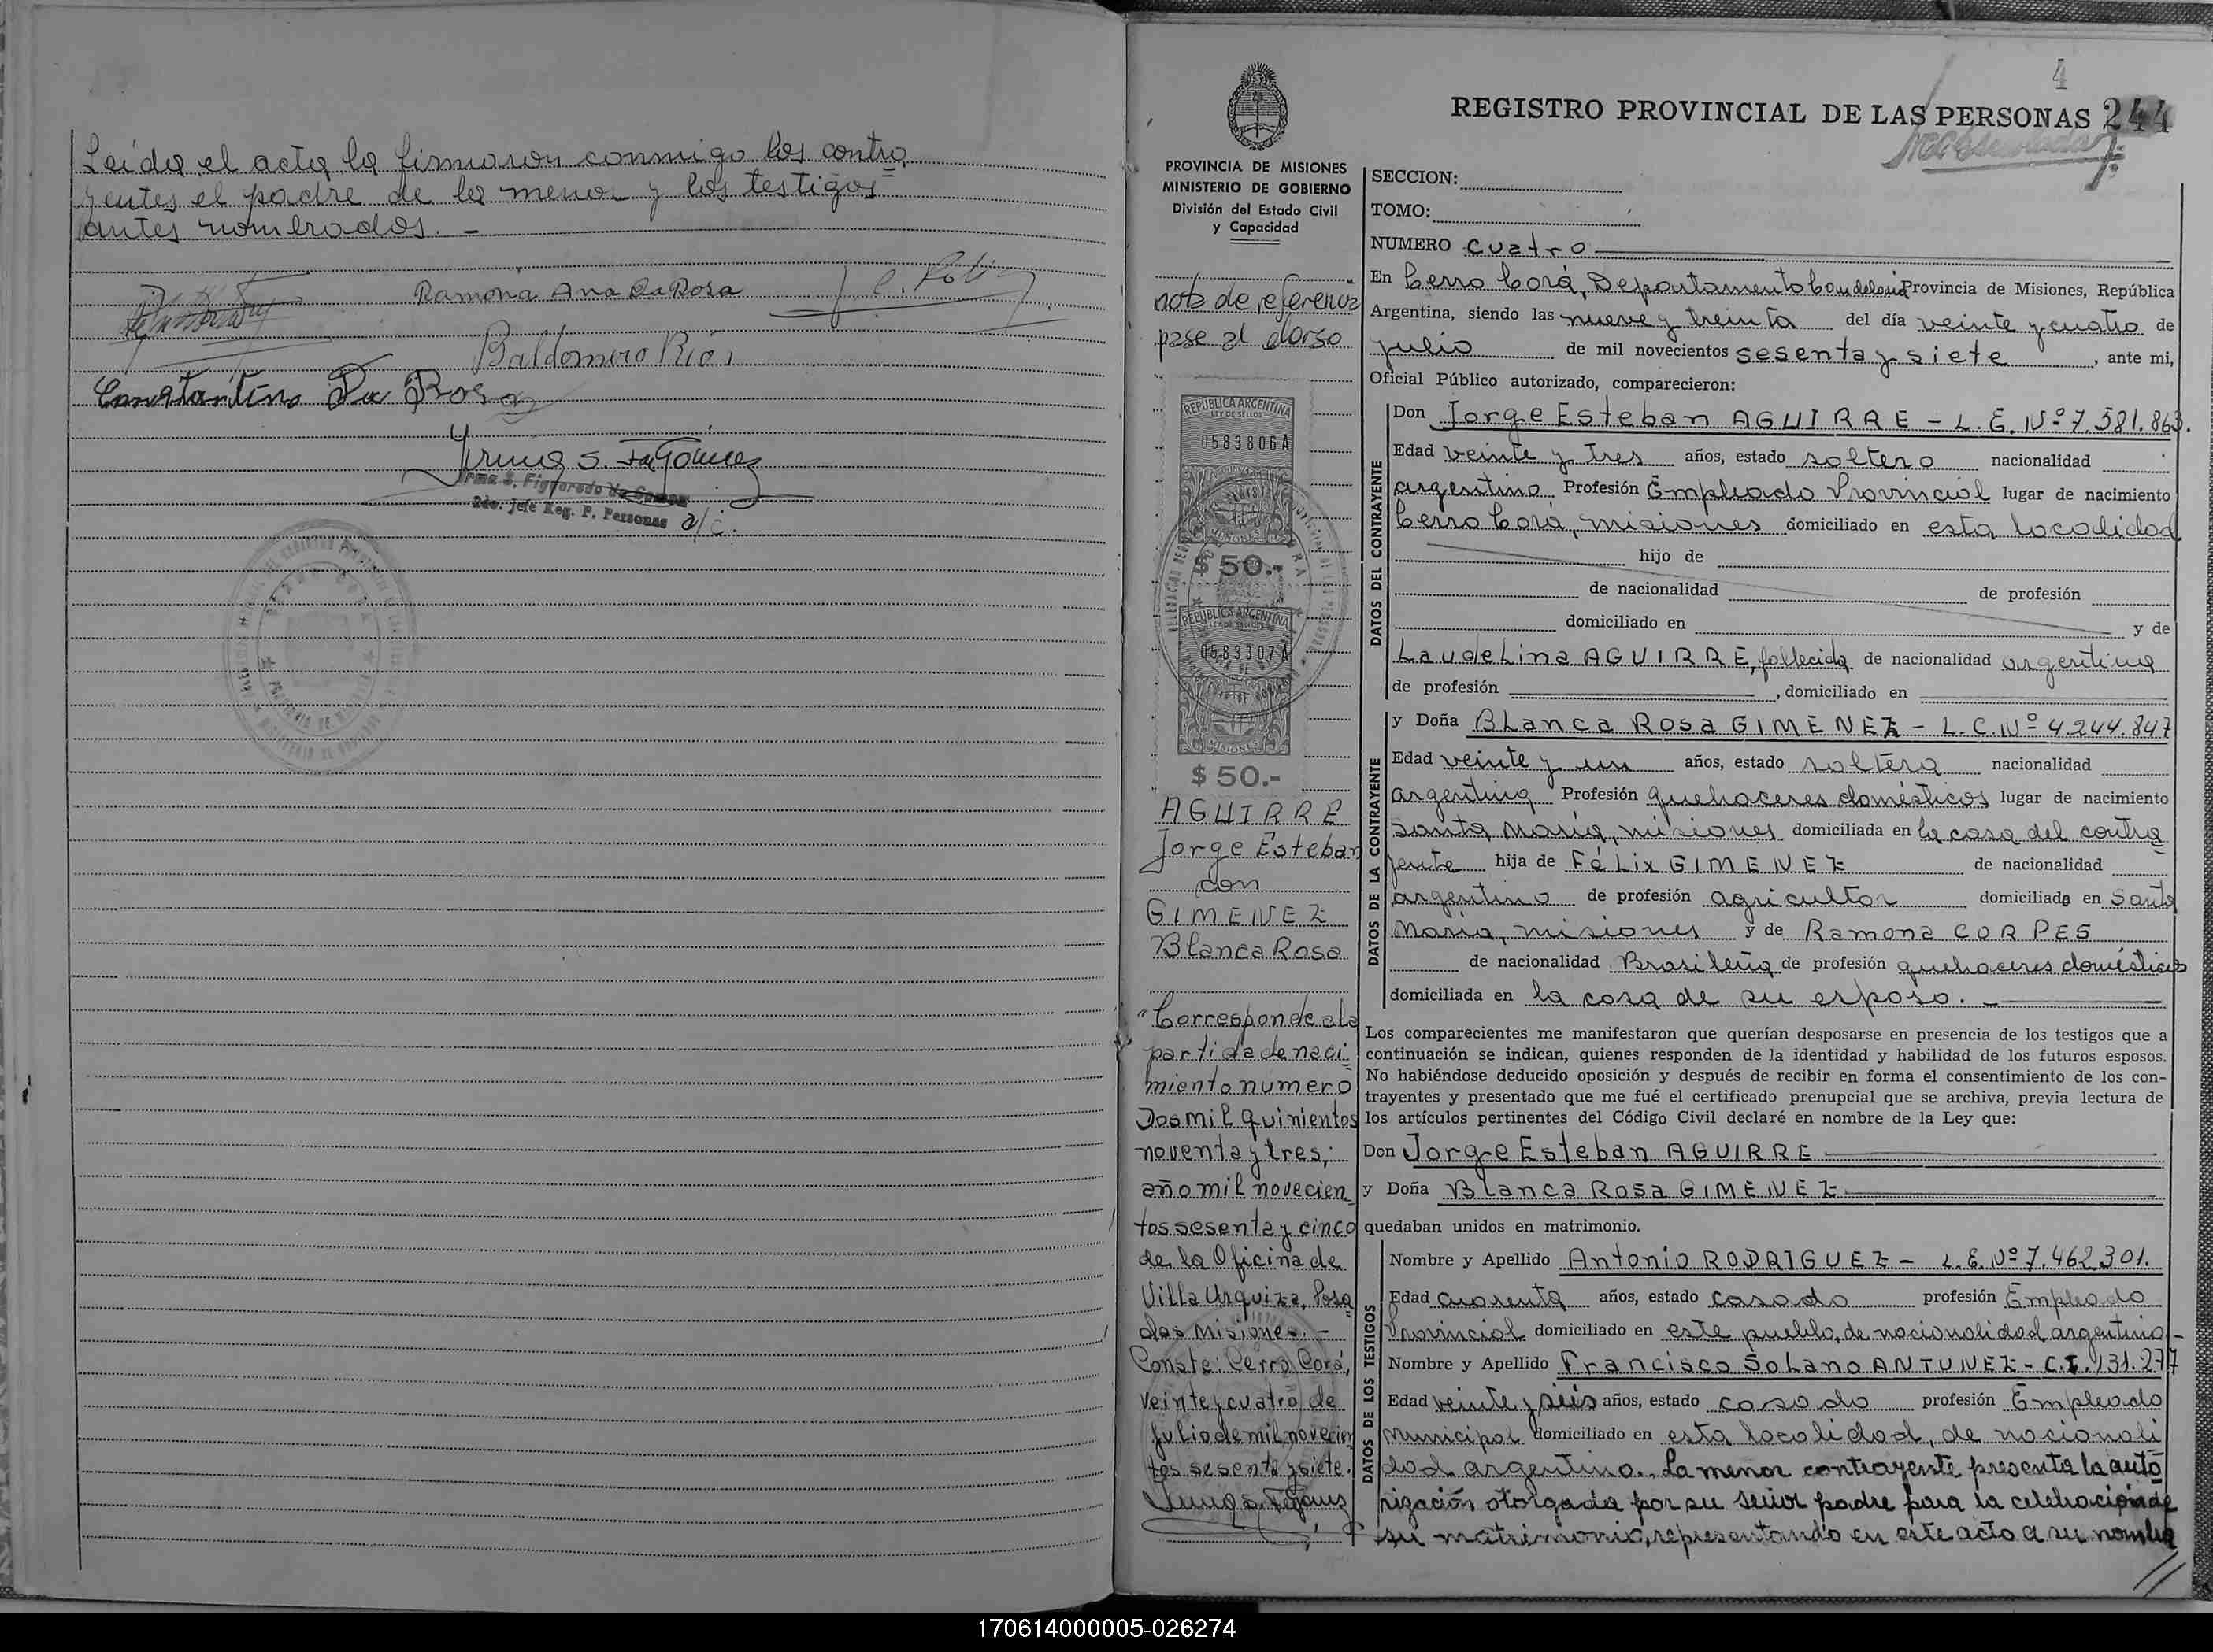 Leída el acta la firmaron conmigo los contra
yentes el padre de la menor y los testigos
antes nombrados. -
Ramona Ana Da Rosa
Baldomero Ríos
Constantino Da Rosa
Irma S. F de Gómez
Irma S. Figueredo de Gomez
2do. Jefe Reg. P. Personas a/c.
4
REGISTRO PROVINCIAL DE LAS PERSONAS 244
PROVINCIA DE MISIONES
MINISTERIO DE GOBIERNO
División del Estado Civil
y Capacidad
nota de referencia
pase al dorso
REPUBLICA ARGENTINA
LEY DE SELLOS
0583806A
MISIONES
$ 50.-
REPUBLICA ARGENTINA
0583307A
MISIONES
$ 50.-
AGUIRRE
Jorge Esteban
con
GIMENEZ
Blanca Rosa
"Corresponde a la
partida de naci
miento numero
Dos mil quinientos
noventa y tres,
año mil novecien
tos sesenta y cinco
de la Oficina de
Villa Urquiza, Posa
das Misiones. -
Conste: Cerro Corá,
veinte y cuatro de
julio de mil novecien
tos sesenta y siete.
SECCION:
TOMO:
NUMERO cuatro
En Cerro Corá, Departamento Candelaria Provincia de Misiones, República
Argentina, siendo las nueve y treinta del día veinte y cuatro de
julio de mil novecientos sesenta y siete, ante mi,
Oficial Público autorizado, comparecieron:
DATOS DEL CONTRAYENTE
Don Jorge Esteban AGUIRRE - L. E. Nº 7.581.863.
Edad veinte y tres años, estado soltero nacionalidad
argentino Profesión Empleado Provincial lugar de nacimiento
Cerro Corá, misiones domiciliado en esta localidad
hijo de
de nacionalidad de profesión
domiciliado en y de
Laudelina AGUIRRE, fallecida de nacionalidad argentina
de profesión , domiciliado en
DATOS DE LA CONTRAYENTE
y Doña Blanca Rosa GIMENEZ - L. C. Nº 4.244.847
Edad veinte y un años, estado soltera nacionalidad
argentina Profesión quehaceres domésticos lugar de nacimiento
Santa María, misiones domiciliada en la casa del contra
yente hija de Félix GIMENEZ de nacionalidad
argentino de profesión agricultor domiciliada en Santa
María, misiones y de Ramona CORPES
de nacionalidad Brasileña de profesión quehaceres domésticos
domiciliada en la casa de su esposo. -
Los comparecientes me manifestaron que querían desposarse en presencia de los testigos que a
continuación se indican, quienes responden de la identidad y habilidad de los futuros esposos.
No habiéndose deducido oposición y después de recibir en forma el consentimiento de los con-
trayentes y presentado que me fué el certificado prenupcial que se archiva, previa lectura de
los artículos pertinentes del Código Civil declaré en nombre de la Ley que:
Don Jorge Esteban AGUIRRE
y Doña Blanca Rosa GIMENEZ
quedaban unidos en matrimonio.
DATOS DE LOS TESTIGOS
Nombre y Apellido Antonio RODRIGUEZ - L. E. Nº 7.462.301.
Edad cuarenta años, estado casado profesión Empleado
Provincial domiciliado en este pueblo, de nacionalidad argentino -
Nombre y Apellido Francisco Solano ANTUNEZ - C. I. 131.277
Edad veinte y seis años, estado casado profesión Empleado
Municipal domiciliado en esta localidad, de nacionali
dad argentino. La menor contrayente presenta la auto
rización otorgada por su señor padre para la celebración de
su matrimonio, representando en este acto a su nombre
170614000005-026274